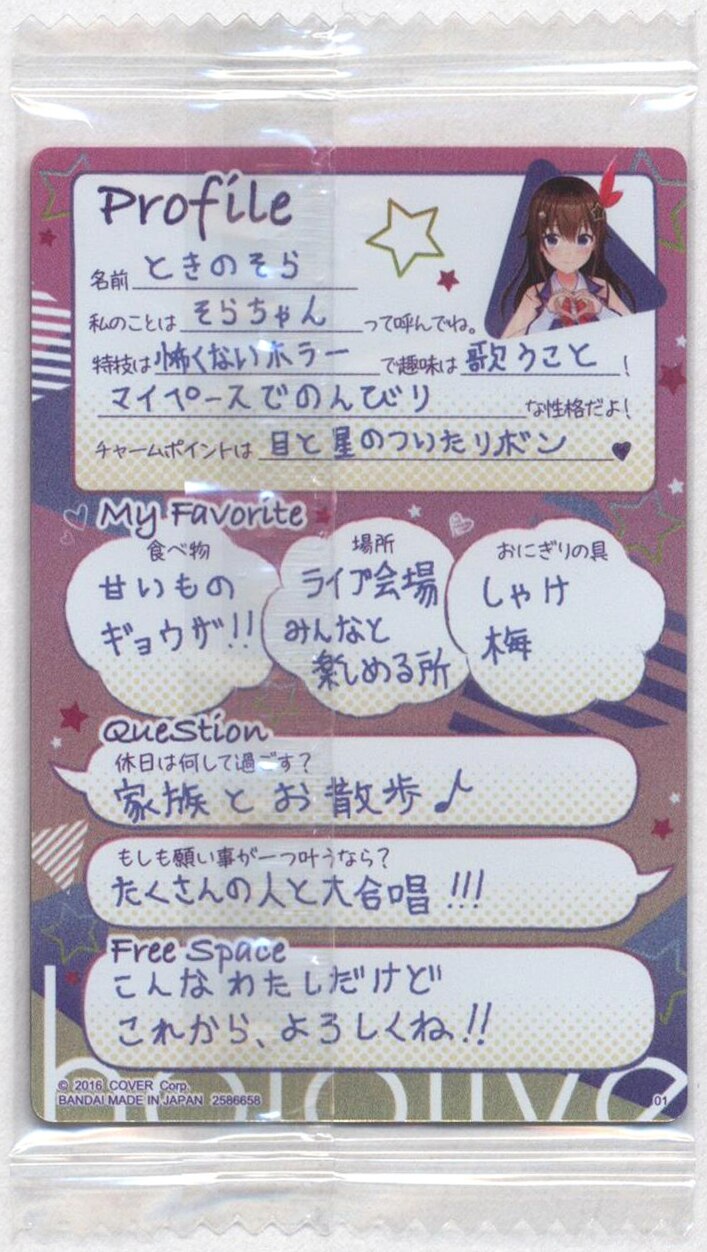 Profile
名前 ときのそら
私のことは そらちゃん って呼んでね。
特技は 怖くないホラー で趣味は 歌うこと !
マイペースでのんびり な性格だよ!
チャームポイントは 目と星のついたリボン ♥
My Favorite
食べ物
甘いもの
ギョウザ!!
場所
ライブ会場
みんなと
楽しめる所
おにぎりの具
しゃけ
梅
Question
休日は何して過ごす?
家族とお散歩♪
もしも願い事が一つ叶うなら?
たくさんの人と大合唱!!!
Free Space
こんなわたしだけど
これから、よろしくね!!
hololive
© 2016 COVER Corp.
BANDAI MADE IN JAPAN 2586658
01